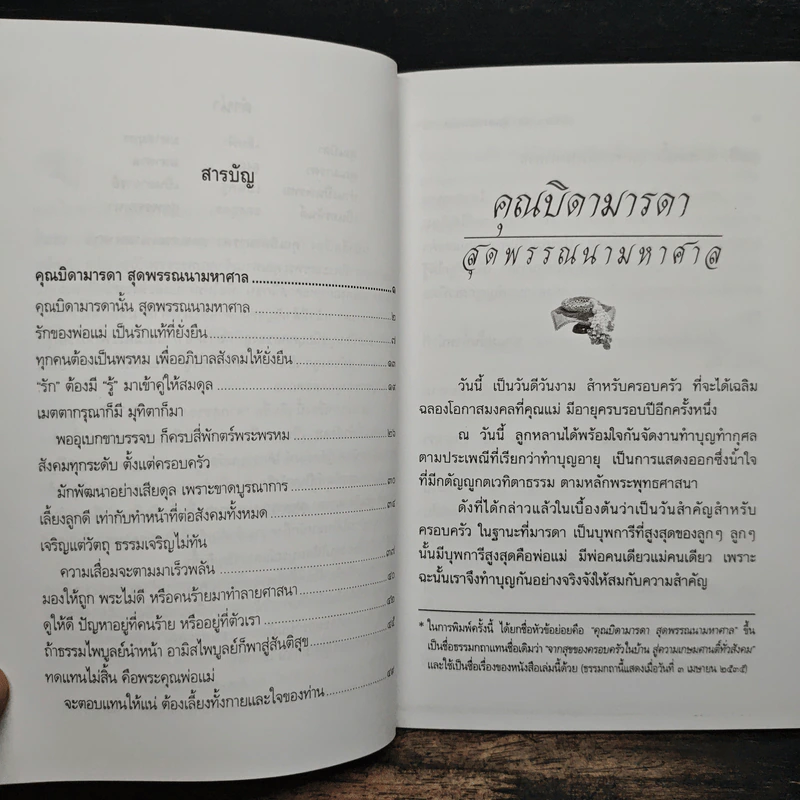 สารบัญ
คุณบิดามารดา สุดพรรณนามหาศาล ๑
คุณบิดามารดานั้น สุดพรรณนามหาศาล ๒
รักของพ่อแม่ เป็นรักแท้ที่ยั่งยืน ๗
ทุกคนต้องเป็นพรหม เพื่ออภิบาลสังคมให้ยั่งยืน ๑๓
“รัก” ต้องมี “รู้” มาเข้าคู่ให้สมดุล
เมตตากรุณาก็มี มุทิตาก็มา
พออุเบกขาบรรจบ ก็ครบสี่พักตร์พระพรหม ๒๖
สังคมทุกระดับ ตั้งแต่ครอบครัว
มักพัฒนาอย่างเสียดุล เพราะขาดบูรณาการ ๓๐
เลี้ยงลูกดี เท่ากับทำหน้าที่ต่อสังคมทั้งหมด ๓๔
เจริญแต่วัตถุ ธรรมเจริญไม่ทัน
ความเสื่อมจะตามมาเร็วพลัน ๓๗
มองให้ถูก พระไม่ดี หรือคนร้ายมาทำลายศาสนา
ดูให้ดี ปัญหาอยู่ที่คนร้าย หรืออยู่ที่ตัวเรา
ถ้าธรรมไพบูลย์นำหน้า อามิสไพบูลย์ก็พาสู่สันติสุข
ทดแทนไม่สิ้น คือพระคุณพ่อแม่
จะตอบแทนให้แน่ ต้องเลี้ยงทั้งกายและใจของท่าน
คุณบิดามารดา
สุดพรรณนามหาศาล
วันนี้ เป็นวันดีวันงาม สำหรับครอบครัว ที่จะได้เฉลิม
ฉลองโอกาสมงคลที่คุณแม่ มีอายุครบรอบปีอีกครั้งหนึ่ง
ณ วันนี้ ลูกหลานได้พร้อมใจกันจัดงานทำบุญทำกุศล
ตามประเพณีที่เรียกว่าทำบุญอายุ เป็นการแสดงออกซึ่งน้ำใจ
ที่มีกตัญญูกตเวทิตาธรรม ตามหลักพระพุทธศาสนา
ดังที่ได้กล่าวแล้วในเบื้องต้นว่าเป็นวันสำคัญสำหรับ
ครอบครัว ในฐานะที่มารดา เป็นบุพการีที่สูงสุดของลูกๆ ลูกๆ
นั้นมีบุพการีสูงสุดคือพ่อแม่ มีพ่อคนเดียวแม่คนเดียว เพราะ
ฉะนั้นเราจึงทำบุญกันอย่างจริงจังให้สมกับความสำคัญ
* ในการพิมพ์ครั้งนี้ ได้ยกชื่อหัวข้อย่อยคือ “คุณบิดามารดา สุดพรรณนามหาศาล” ขึ้น
เป็นชื่อธรรมกถาแทนชื่อเดิมว่า “จากสุขของครอบครัวในบ้าน สู่ความเกษมศานติ์ทั่วสังคม”
และใช้เป็นชื่อเรื่องของหนังสือเล่มนี้ด้วย (ธรรมกถานี้แสดงเมื่อวันที่ ๓ เมษายน ๒๕๓๕)